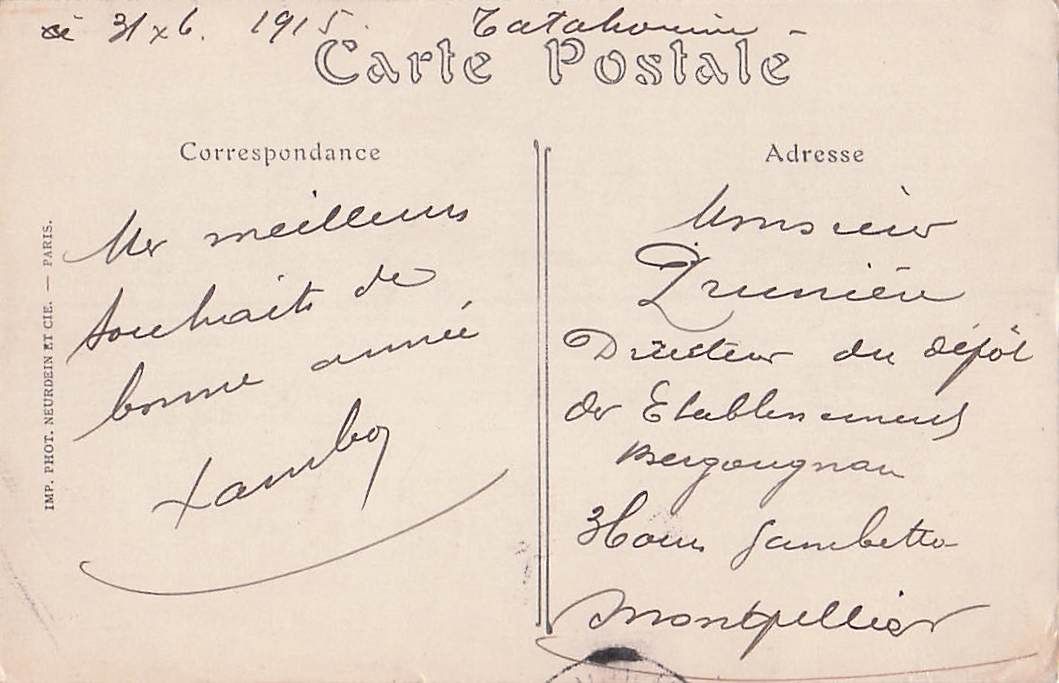 31 Xb. 1915. Tatahouine -
Carte Postale
Correspondance
Mes meilleurs
souhaits de
bonne année
Adresse
Monsieur
Directeur du dépôt
des Etablissements
Bergougnan
Cours Gambetta
Montpellier
IMP. PHOT. NEURDEIN ET CIE. — PARIS.